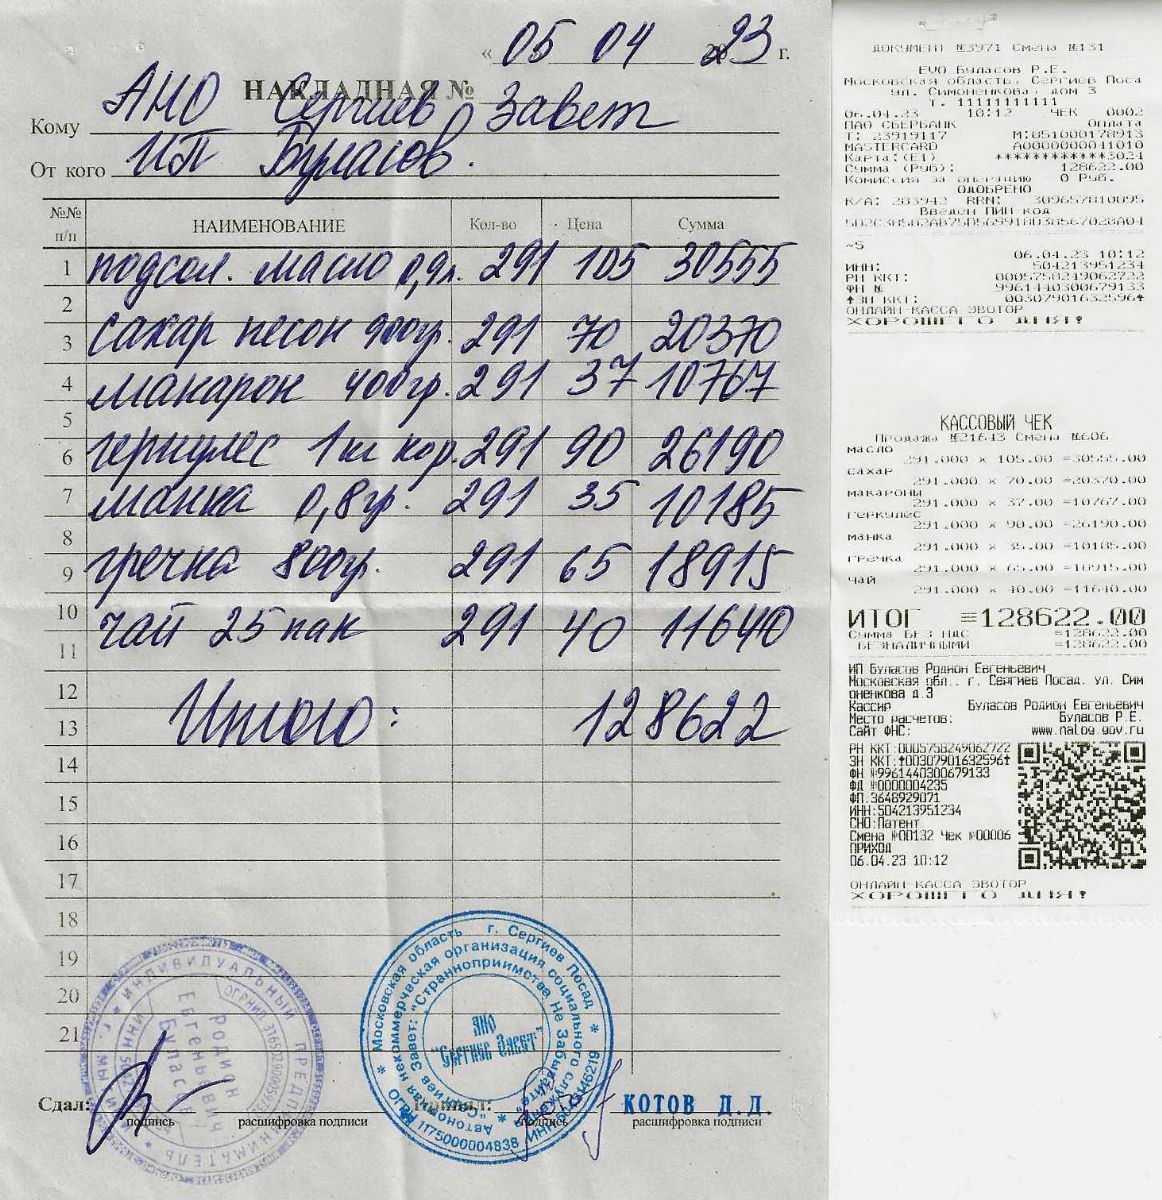 « 05 04 2023 г.
НАКЛАДНАЯ №
Кому АНО Сергиев Завет
От кого ИП Буласов.
№№ п/п НАИМЕНОВАНИЕ Кол-во Цена Сумма
1 подсол. масло 0,9л. 291 105 30555
2
3 сахар песок 900гр. 291 70 20370
4 макарон 400гр. 291 37 10767
5
6 геркулес 1кг кор. 291 90 26190
7 манка 0,8гр. 291 35 10185
8
9 гречка 800гр. 291 65 18915
10 чай 25 пак 291 40 11640
11
12
13 Итого: 128622
14
15
16
17
18
19
20
21
Сдал: Принял: КОТОВ Д.Д.
подпись расшифровка подписи подпись расшифровка подписи
ИНДИВИДУАЛЬНЫЙ ПРЕДПРИНИМАТЕЛЬ
Родион
Евгеньевич
Буласов
Московская область г. Сергиев Посад
Автономная некоммерческая организация социального служения
"Сергиев Завет: "Странноприимства Не Забывайте"
АНО
"Сергиев Завет"
1175000004838
ДОКУМЕНТ №3971 Смена №131
EVO Буласов Р.Е.
Московская область, Сергиев Поса
ул. Симоненкова, дом 3
т. 11111111111
06.04.23 10:12 ЧЕК 0002
ПАО СБЕРБАНК Оплата
Т: 23919117 М:851000178913
MASTERCARD A0000000041010
Карта:(E1) ************3024
Сумма (Руб): 128622.00
Комиссия за операцию - 0 Руб.
ОДОБРЕНО
К/А: 283942 RRN: 309657810895
Введен ПИН код
~S
06.04.23 10:12
ИНН: 504213951234
РН ККТ: 0005758249062722
ФН № 9961440300679133
ЗН ККТ: 00307901632596
ОНЛАЙН-КАССА ЭВОТОР
ХОРОШЕГО ДНЯ!
КАССОВЫЙ ЧЕК
Продажа №21643 Смена №606
масло
291.000 x 105.00 =30555.00
сахар
291.000 x 70.00 =20370.00
макароны
291.000 x 37.00 =10767.00
геркулес
291.000 x 90.00 =26190.00
манка
291.000 x 35.00 =10185.00
гречка
291.000 x 65.00 =18915.00
чай
291.000 x 40.00 =11640.00
ИТОГ =128622.00
Сумма БЕЗ НДС =128622.00
БЕЗНАЛИЧНЫМИ =128622.00
ИП Буласов Родион Евгеньевич
Московская обл., г. Сергиев Посад, ул. Сим
оненкова д.3
Кассир Буласов Родион Евгеньевич
Место расчетов: Буласов Р.Е.
Сайт ФНС: www.nalog.gov.ru
РН ККТ:0005758249062722
ЗН ККТ:00307901632596
ФН №9961440300679133
ФД №0000004235
ФП:3648929071
ИНН:504213951234
СНО:Патент
Смена №00132 Чек №00006
ПРИХОД
06.04.23 10:12
ОНЛАЙН-КАССА ЭВОТОР
ХОРОШЕГО ДНЯ!